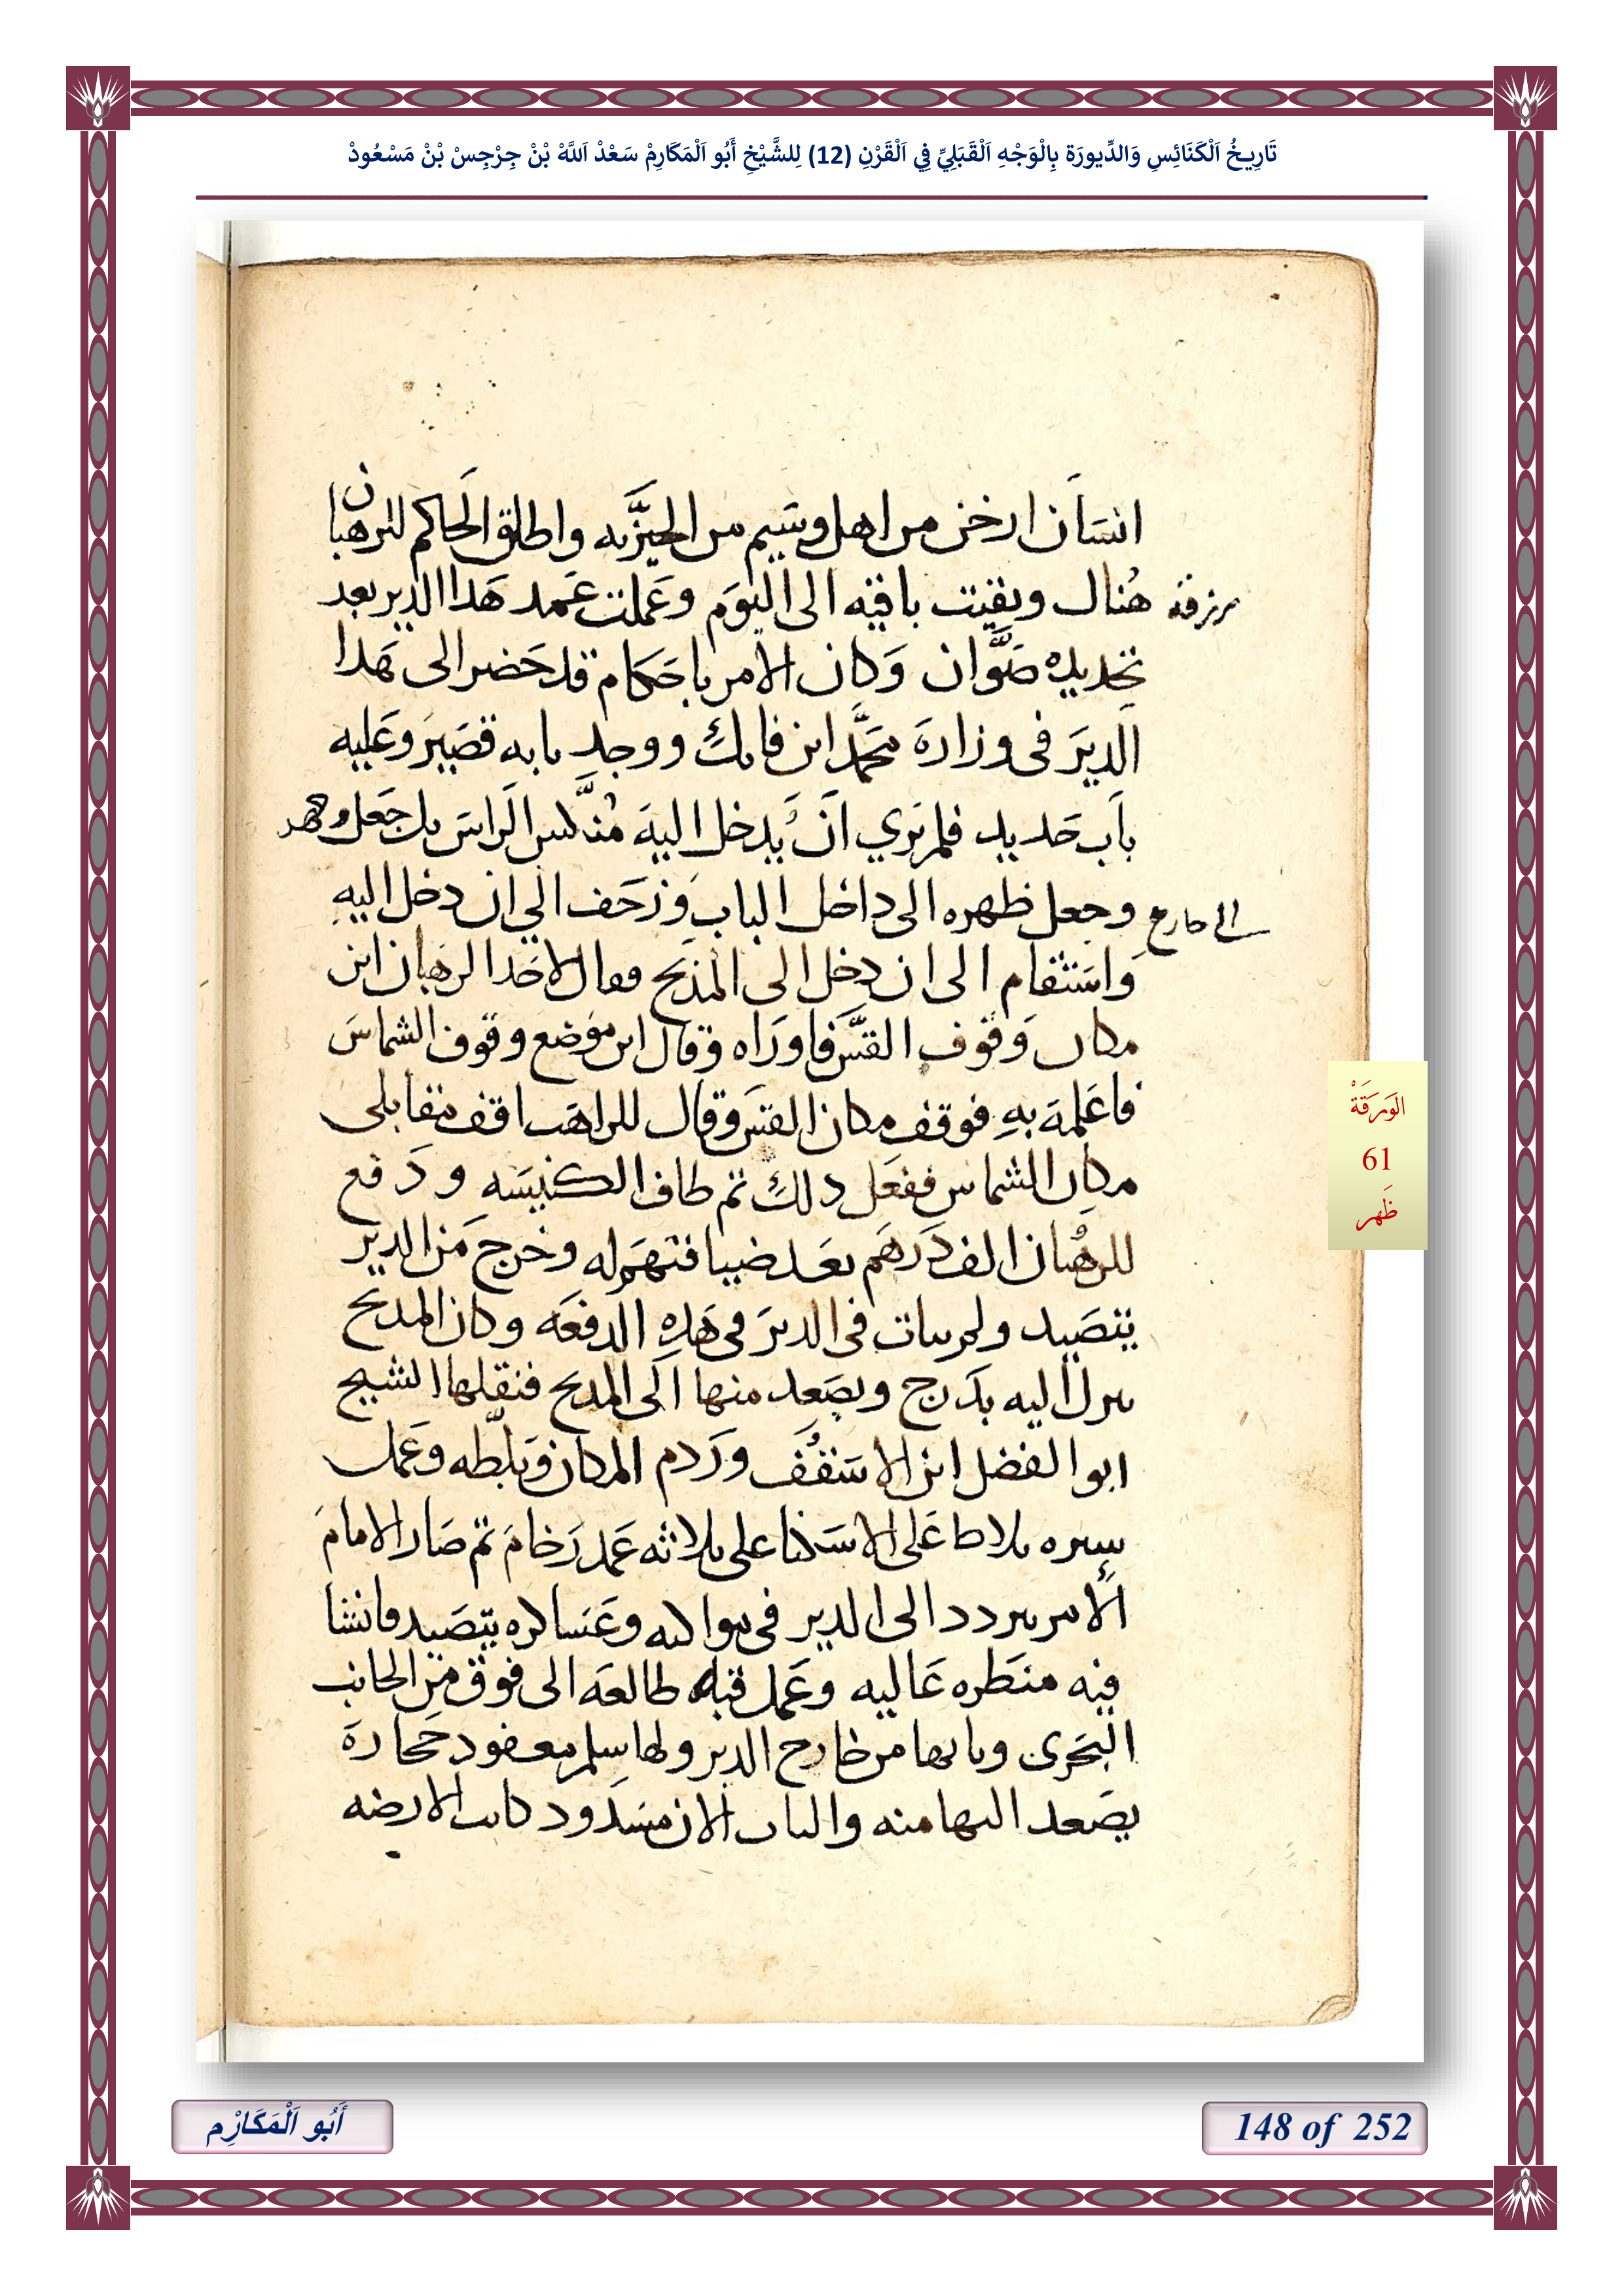 تَارِيخُ اَلْكَنَائِسِ وَالدِّيورَة بِالْوَجْهِ اَلْقَبَلِيِّ فِي اَلْقَرْنِ (12) لِلشَّيْخِ أَبُو اَلْمَكَارِمْ سَعْدْ اَللَّهْ بْنْ جِرْجِسْ بْنْ مَسْعُودْ
انسان ارخن من اهل وسيم من الجيزيه واطلق الحاكم للرهبان
رزقة هناك وبقيت باقيه الى اليوم وعملت عمد هدا الدير بعد
تجديده صوان وكان الامر باحكام قد حضر الى هدا
الدير في وزارة محمد ابن فاتك ووجد بابه قصير وعليه
باب حديد فلم يري ان يدخل اليه منكس الراس بل جعل وجهه
الى خارج وجعل ظهره الى داخل الباب وزحف الي ان دخل اليه
واستقام الى ان دخل الى المذبح فقال لاحد الرهبان اين
مكان وقوف القس فاوراه وقال اين موضع وقوف الشماس
فاعلمه به فوقف مكان القس وقال للراهب اقف مقابلى
مكان الشماس ففعل دلك تم طاف الكنيسه ودفع
للرهبان الف درهم بعد ضيافتهم له وخرج من الدير
يتصيد ولم يبات في الدير في هده الدفعه وكان المدبح
ينزل اليه بدرج ويصعد منها الى المدبح فنقلها الشيخ
ابو الفضل ابن الاسقف وردم المكان وبلطه وعمل
سيره بلاط على الاسكنا على تلاثه عمد رخام تم صار الامام
الآمر يتردد الى الدير في مواكبه وعساكره يتصيد فانشا
فيه منطره عاليه وعمل قبله طالعه الى فوق من الجانب
البحرى وبابها من خارج الدير ولها سلم معقود حجارة
يصعد اليها منه والباب الان مسدود كانت الارضه
اَلْوَرَقَةْ
61
ظَهر
أَبُو اَلْمَكَارِْم
148 of 252